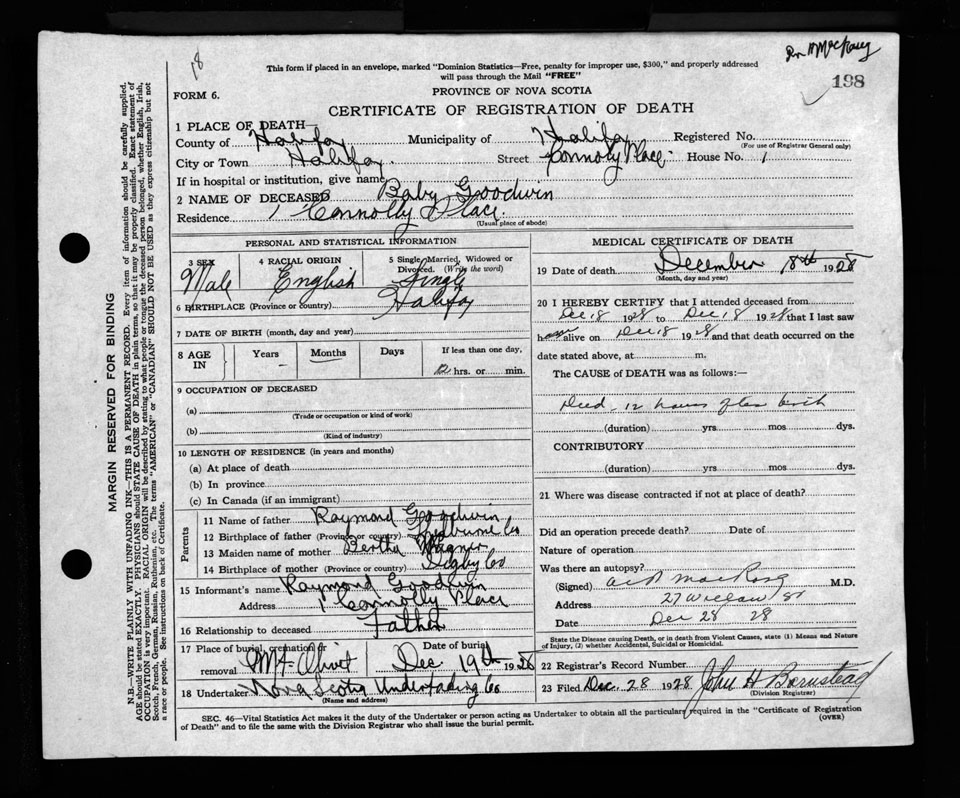 18
198
This form if placed in an envelope, marked "Dominion Statistics—Free, penalty for improper use, $300," and properly addressed
will pass through the Mail "FREE"
FORM 6.
PROVINCE OF NOVA SCOTIA
CERTIFICATE OF REGISTRATION OF DEATH
1 PLACE OF DEATH—
County of Halifax Municipality of Halifax Registered No.
(For use of Registrar General only)
City or Town Halifax. Street Connoly Place. House No. 1
If in hospital or institution, give name
2 NAME OF DECEASED Baby Goodwin
Residence 1 Connolly Place.
(Usual place of abode)
PERSONAL AND STATISTICAL INFORMATION
3 SEX Male
4 RACIAL ORIGIN English
5 Single, Married, Widowed or Divorced. (Write the word) Single
6 BIRTHPLACE (Province or country) Halifax
7 DATE OF BIRTH (month, day and year)
8 AGE IN Years – Months Days If less than one day, 12 hrs. or min.
9 OCCUPATION OF DECEASED
(a)
(Trade or occupation or kind of work)
(b)
(Kind of industry)
10 LENGTH OF RESIDENCE (in years and months)
(a) At place of death
(b) In province
(c) In Canada (if an immigrant)
Parents
11 Name of father Raymond Goodwin
12 Birthplace of father (Province or country) Shelburne Co
13 Maiden name of mother Bertha Wagner
14 Birthplace of mother (Province or country) Digby Co
15 Informant's name Raymond Goodwin
Address 1 Connolly Place
16 Relationship to deceased Father
17 Place of burial, cremation or removal Mt Olivet Date of burial Dec 19th 1928
18 Undertaker Nova Scotia Undertaking Co
(Name and address)
MEDICAL CERTIFICATE OF DEATH
19 Date of death December 18th 1928
(Month, day and year)
20 I HEREBY CERTIFY that I attended deceased from
Dec 18 1928 to Dec 18 1928 that I last saw
h alive on Dec 18 1928 and that death occurred on the
date stated above, at m.
The CAUSE of DEATH was as follows:—
Died 12 hours after birth
(duration) yrs mos dys.
CONTRIBUTORY
(duration) yrs mos dys.
21 Where was disease contracted if not at place of death?
Did an operation precede death? Date of
Nature of operation
Was there an autopsy?
(Signed) M.D.
Address 27 Willow St
Date Dec 28 28
State the Disease causing Death, or in death from Violent Causes, state (1) Means and Nature
of Injury, (2) whether Accidental, Suicidal or Homicidal.
22 Registrar's Record Number
23 Filed Dec 28 1928 John H
(Division Registrar)
SEC. 46—Vital Statistics Act makes it the duty of the Undertaker or person acting as Undertaker to obtain all the particulars required in the "Certificate of Registration
of Death" and to file the same with the Division Registrar who shall issue the burial permit.
(OVER)
MARGIN RESERVED FOR BINDING
N.B.—WRITE PLAINLY WITH UNFADING INK—THIS IS A PERMANENT RECORD. Every item of information should be carefully supplied.
AGE should be stated EXACTLY. PHYSICIANS should STATE CAUSE OF DEATH in plain terms, so that it may be properly classified. Exact statement of
OCCUPATION is very important. RACIAL ORIGIN will be described by stating to what people or tongue the deceased person belonged, whether English, Irish,
Scotch, French, German, Russian, Ruthenian, etc. The terms "AMERICAN" or "CANADIAN" SHOULD NOT BE USED as they express citizenship but not
a race or people. See instructions on back of Certificate.